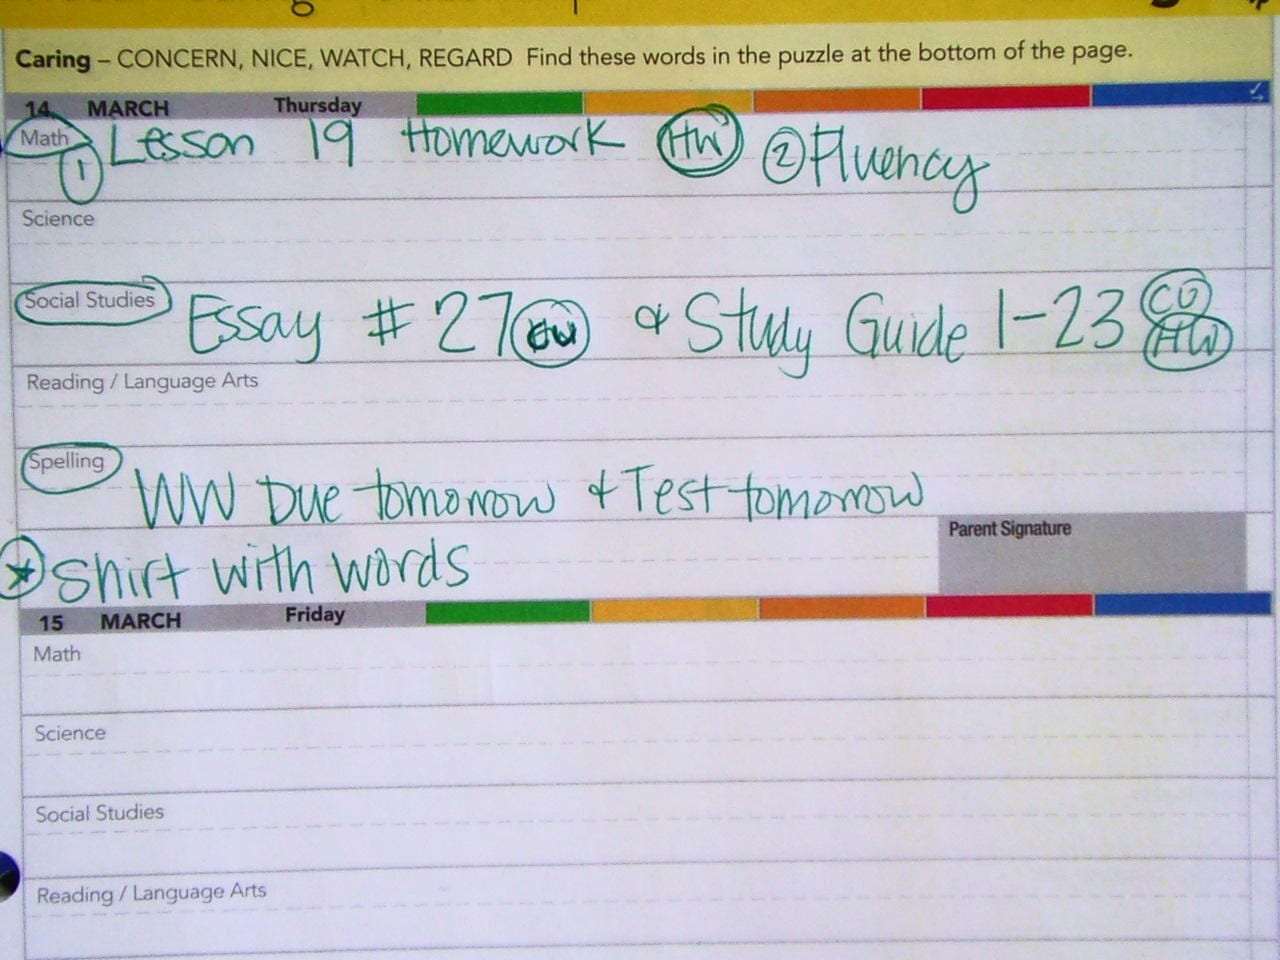 Caring – CONCERN, NICE, WATCH, REGARD Find these words in the puzzle at the bottom of the page.
14 MARCH Thursday
Math ① Lesson 19 Homework HW ② Fluency
Science
Social Studies Essay # 27 HW & Study Guide 1-23 HW
Reading / Language Arts
Spelling
WW Due tomorrow & Test tomorrow
Parent Signature
Shirt with words
15 MARCH Friday
Math
Science
Social Studies
Reading / Language Arts